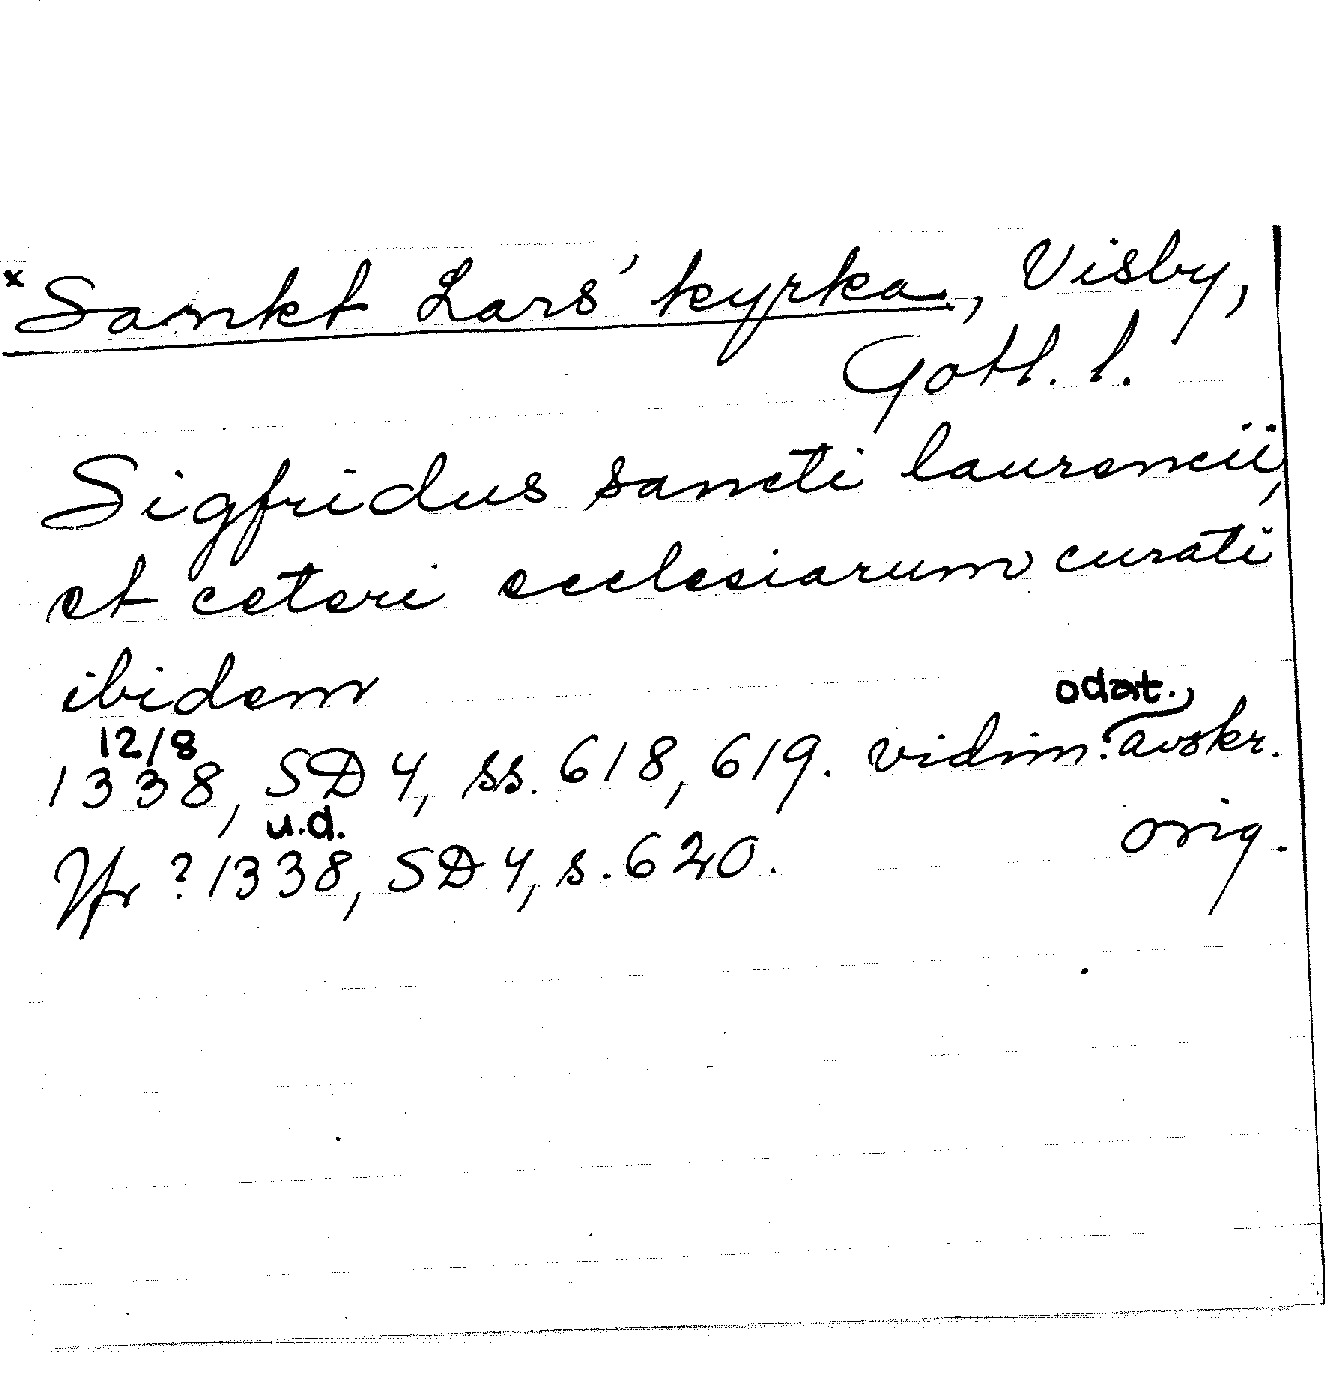 x Sankt Lars' kyrka, Visby,
Gotl. l.
Sigfridus sancti laurencii,
et ceteri ecclesiarum curati
ibidem
odat.
12/8
1338, SD 4, ss. 618, 619. vidim. avskr.
u.d.
Jfr ? 1338, SD 4, s. 620. orig.